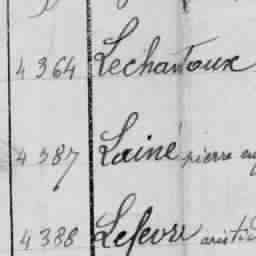 4364 Lechantoux
4387 Lainé pierre
4388 Lefevre